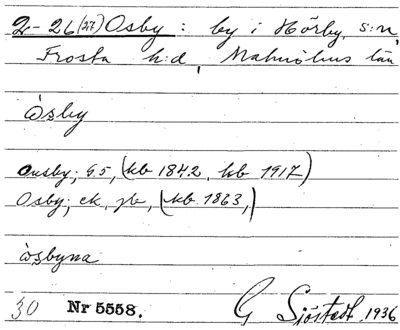 2-26(27) Osby : by i Hörby, s:n,
Frosta h:d, Malmöhus län
òsby
Ousby; G5, (kb 1842, hb 1917)
Osby; ek, jb, (kb 1863,)
òsbyna
30 Nr 5558. G Sjöstedt, 1936